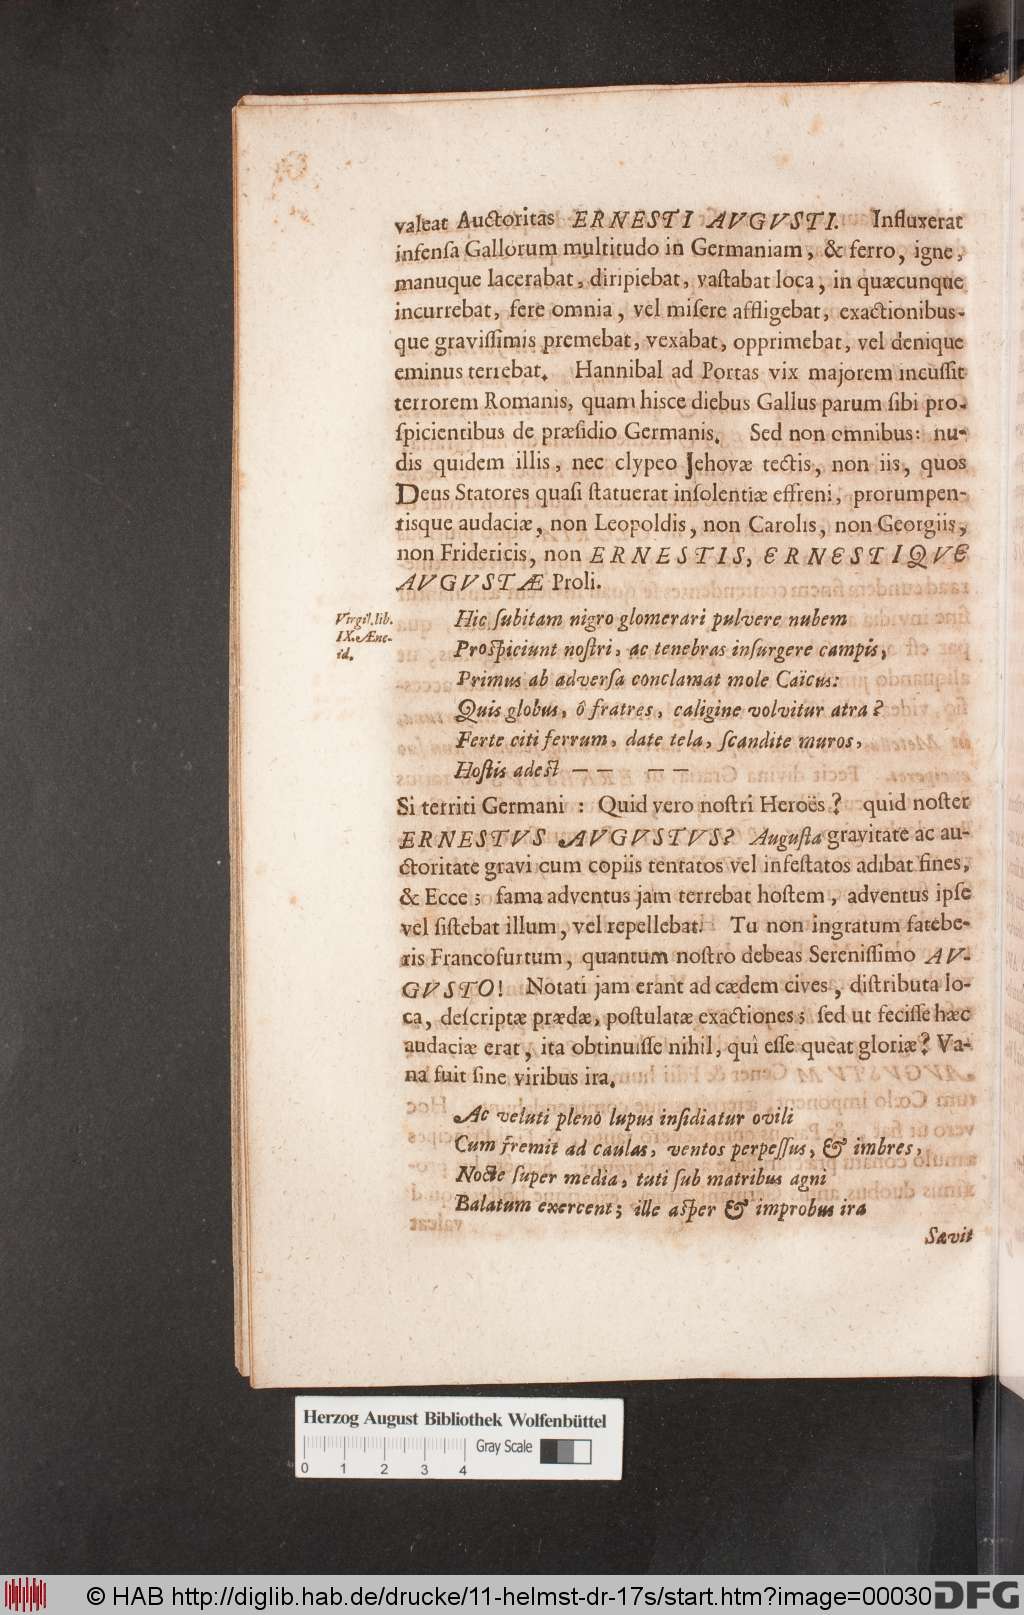 valeat Auctoritas ERNESTI AVGVSTI. Influxerat
infenſa Gallorum multitudo in Germaniam, & ferro, igne,
manuque lacerabat, diripiebat, vaſtabat loca, in quæcunque
incurrebat, fere omnia, vel miſere affligebat, exactionibus-
que graviſſimis premebat, vexabat, opprimebat, vel denique
eminus terrebat. Hannibal ad Portas vix majorem incuſſit
terrorem Romanis, quam hisce diebus Gallus parum ſibi pro-
ſpicientibus de præſidio Germanis. Sed non omnibus: nu-
dis quidem illis, nec clypeo Jehovæ tectis, non iis, quos
Deus Statores quaſi ſtatuerat inſolentiæ effreni, prorumpen-
tisque audaciæ, non Leopoldis, non Carolis, non Georgiis,
non Fridericis, non ERNESTIS, ERNESTIQVE
AVGVSTÆ Proli.
Virgil. lib.
IX. Æne-
id.
Hic ſubitam nigro glomerari pulvere nubem
Proſpiciunt noſtri, ac tenebras inſurgere campis,
Primus ab adverſa conclamat mole Caïcus:
Quis globus, ô fratres, caligine volvitur atra?
Ferte citi ferrum, date tela, ſcandite muros,
Hoſtis adeſt — — — —
Si territi Germani : Quid vero noſtri Heroës? quid noſter
ERNESTVS AVGVSTVS? Auguſta gravitate ac au-
ctoritate gravi cum copiis tentatos vel infeſtatos adibat fines,
& Ecce; fama adventus jam terrebat hoſtem, adventus ipſe
vel ſiſtebat illum, vel repellebat. Tu non ingratum fatebe-
ris Francofurtum, quantum noſtro debeas Sereniſſimo AV-
GVSTO! Notati jam erant ad cædem cives, diſtributa lo-
ca, deſcriptæ prædæ, poſtulatæ exactiones; ſed ut feciſſe hæc
audaciæ erat, ita obtinuiſſe nihil, quì eſſe queat gloriæ? Va-
na fuit ſine viribus ira.
Ac veluti pleno lupus inſidiatur ovili
Cum fremit ad caulas, ventos perpeſſus, & imbres,
Nocte ſuper media, tuti ſub matribus agni
Balatum exercent; ille aſper & improbus ira
Sævit
Herzog August Bibliothek Wolfenbüttel
Gray Scale
0 1 2 3 4
© HAB http://diglib.hab.de/drucke/11-helmst-dr-17s/start.htm?image=00030
DFG